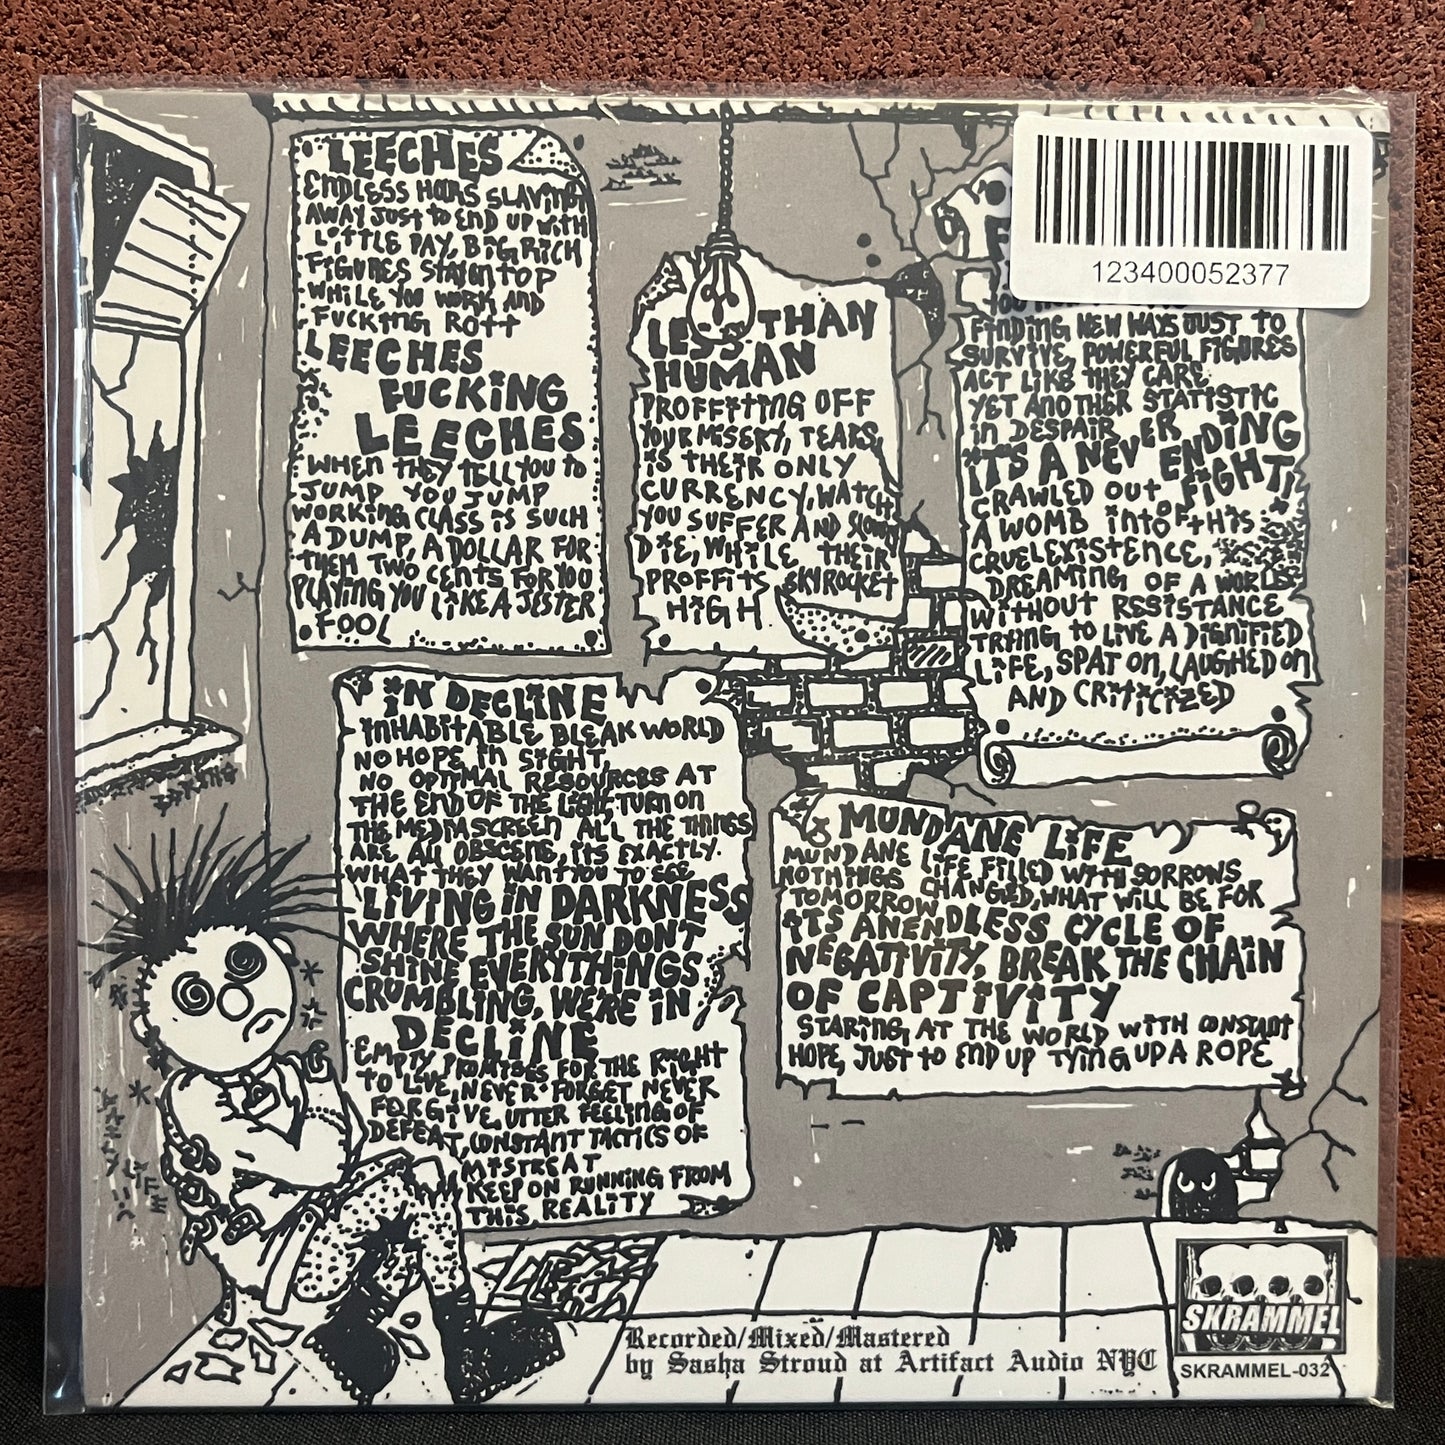 LEECHES
ENDLESS HOURS SLAVING
AWAY JUST TO END UP WITH
LITTLE PAY, BIG RICH
FIGURES STAY ON TOP
WHILE YOU WORK AND
FUCKING ROTT
LEECHES
FUCKING
LEECHES
WHEN THEY TELL YOU TO
JUMP YOU JUMP
WORKING CLASS IS SUCH
A DUMP, A DOLLAR FOR
THEM TWO CENTS FOR YOU
PLAYING YOU LIKE A JESTER
FOOL
LESS THAN
HUMAN
PROFFITING OFF
YOUR MISERY, TEARS
IS THEIR ONLY
CURRENCY, WATCH
YOU SUFFER AND SLOWLY
DIE, WHILE THEIR
PROFFITS SKYROCKET
HIGH
123400052377
FINDING NEW WAYS JUST TO
SURVIVE, POWERFUL FIGURES
ACT LIKE THEY CARE
YET ANOTHER STATISTIC
IN DESPAIR
IT'S A NEVER ENDING
FIGHT!
CRAWLED OUT OF
A WOMB INTO THIS
CRUEL EXISTENCE,
DREAMING OF A WORLD
WITHOUT RESISTANCE
TRYING TO LIVE A DIGNIFIED
LIFE, SPAT ON, LAUGHED ON
AND CRITICIZED
IN DECLINE
INHABITABLE BLEAK WORLD
NO HOPE IN SIGHT,
NO OPTIMAL RESOURCES AT
THE END OF THE LIGHT, TURN ON
THE MEDIA SCREEN ALL THE THINGS
ARE ALL OBSCENE, ITS EXACTLY
WHAT THEY WANT YOU TO SEE
LIVING IN DARKNESS
WHERE THE SUN DON'T
SHINE EVERYTHINGS
CRUMBLING, WE'RE IN
DECLINE
EMPTY PROMISES FOR THE RIGHT
TO LIVE, NEVER FORGET NEVER
FORGIVE, UTTER FEELING OF
DEFEAT, CONSTANT TACTICS OF
MISTREAT
KEEP ON RUNNING FROM
THIS REALITY
MUNDANE LIFE
MUNDANE LIFE FILLED WITH SORROWS
NOTHINGS CHANGED, WHAT WILL BE FOR
TOMORROW
ITS AN ENDLESS CYCLE OF
NEGATIVITY, BREAK THE CHAIN
OF CAPTIVITY
STARING AT THE WORLD WITH CONSTANT
HOPE, JUST TO END UP TYING UP A ROPE
Recorded/Mixed/Mastered
by Sasha Stroud at Artifact Audio NYC
SKRAMMEL
SKRAMMEL-032